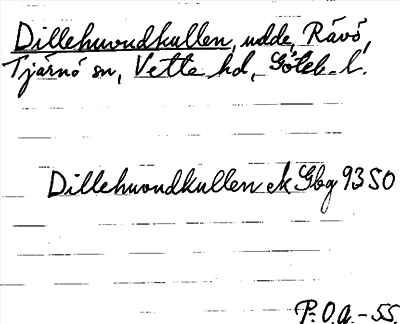 Dillehuvudkullen, udde, Råvö,
Tjärnö sn, Vette hd, Göteb. l.
Dillehuvudkullen ek Gbg 9350
P.O.A.-55.